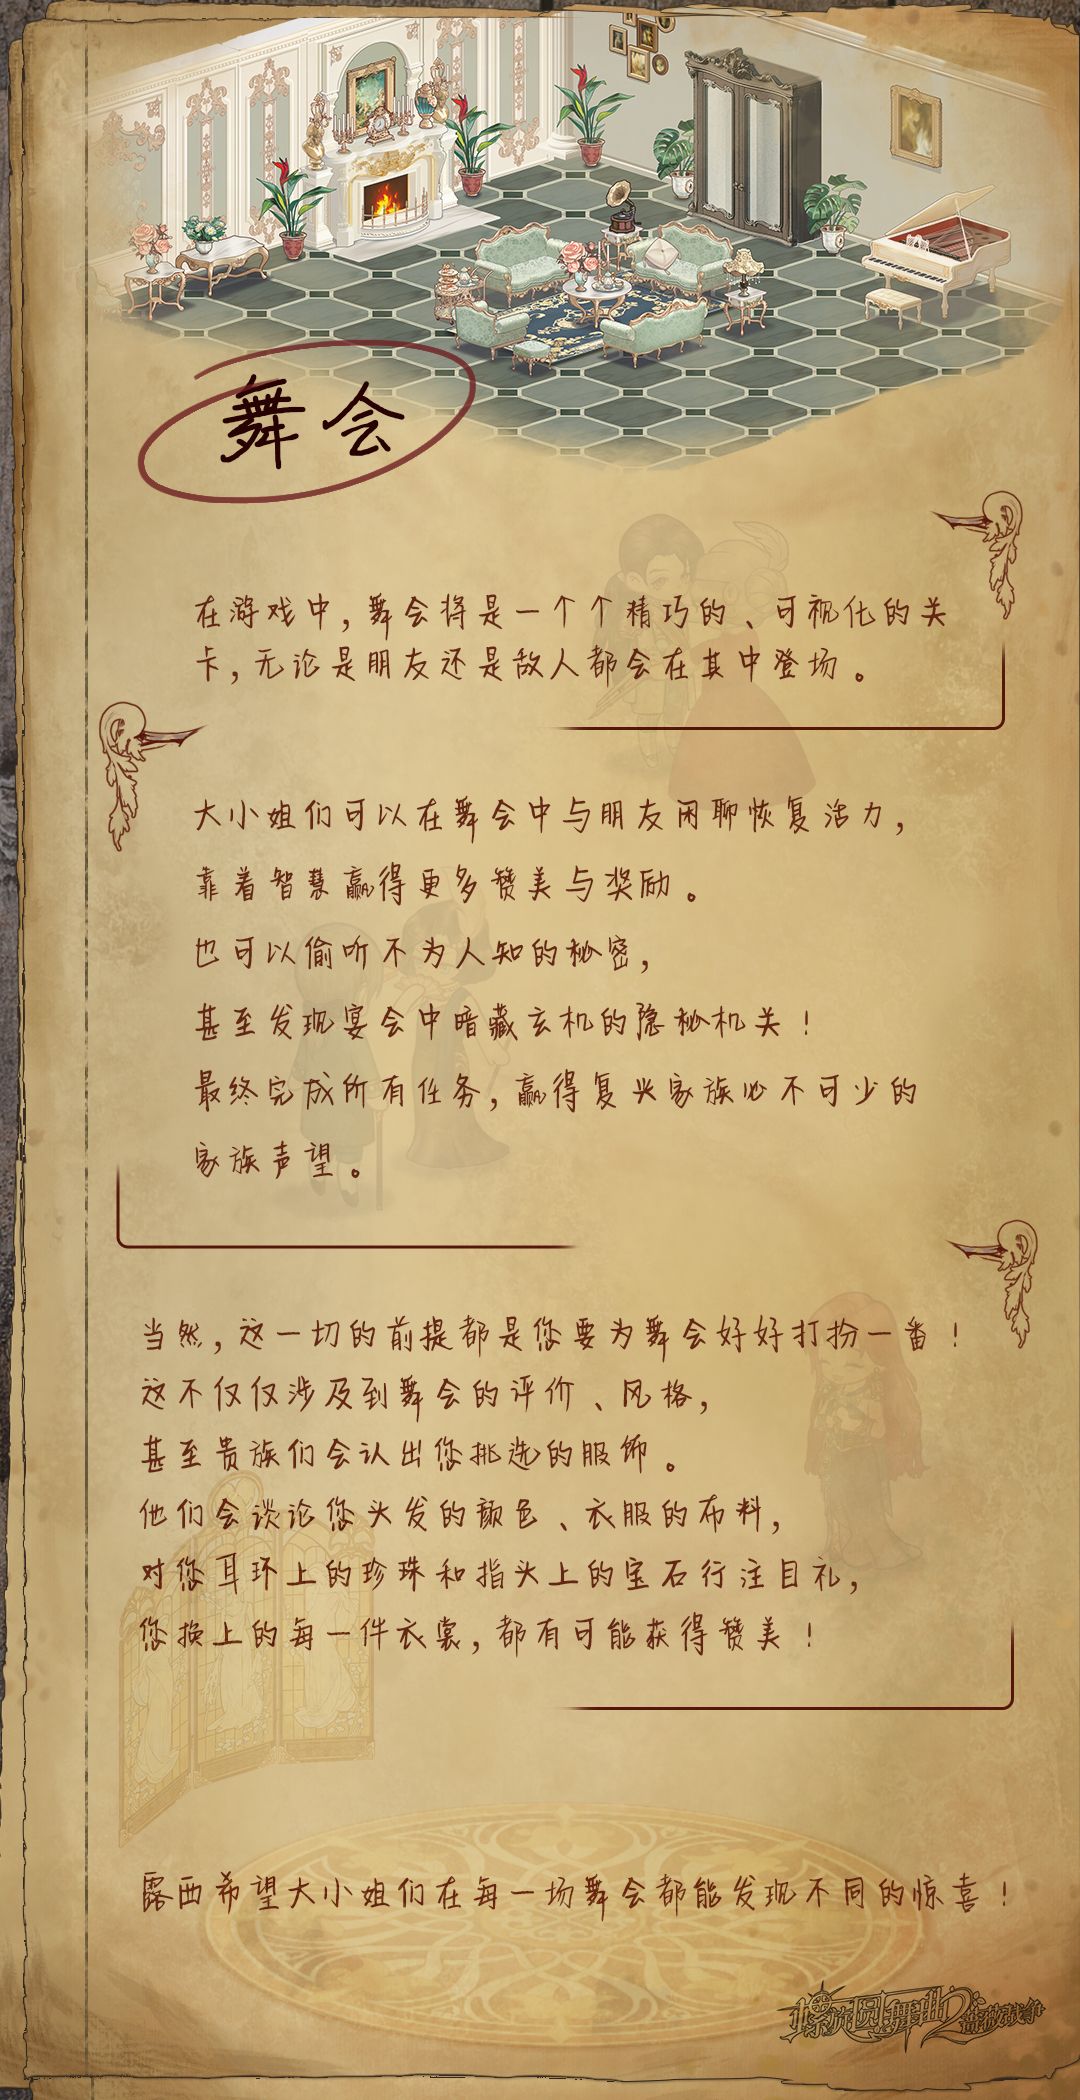 舞会
在游戏中，舞会将是一个个精巧的、可视化的关
卡，无论是朋友还是敌人都会在其中登场。
大小姐们可以在舞会中与朋友闲聊恢复活力，
靠着智慧赢得更多赞美与奖励。
也可以偷听不为人知的秘密，
甚至发现宴会中暗藏玄机的隐秘机关！
最终完成所有任务，赢得复兴家族必不可少的
家族声望。
当然，这一切的前提都是您要为舞会好好打扮一番！
这不仅仅涉及到舞会的评价、风格，
甚至贵族们会认出您挑选的服饰。
他们会谈论您头发的颜色、衣服的布料，
对您耳环上的珍珠和指头上的宝石行注目礼，
您换上的每一件衣裳，都有可能获得赞美！
露西希望大小姐们在每一场舞会都能发现不同的惊喜！
螺旋圆舞曲2蔷薇战争